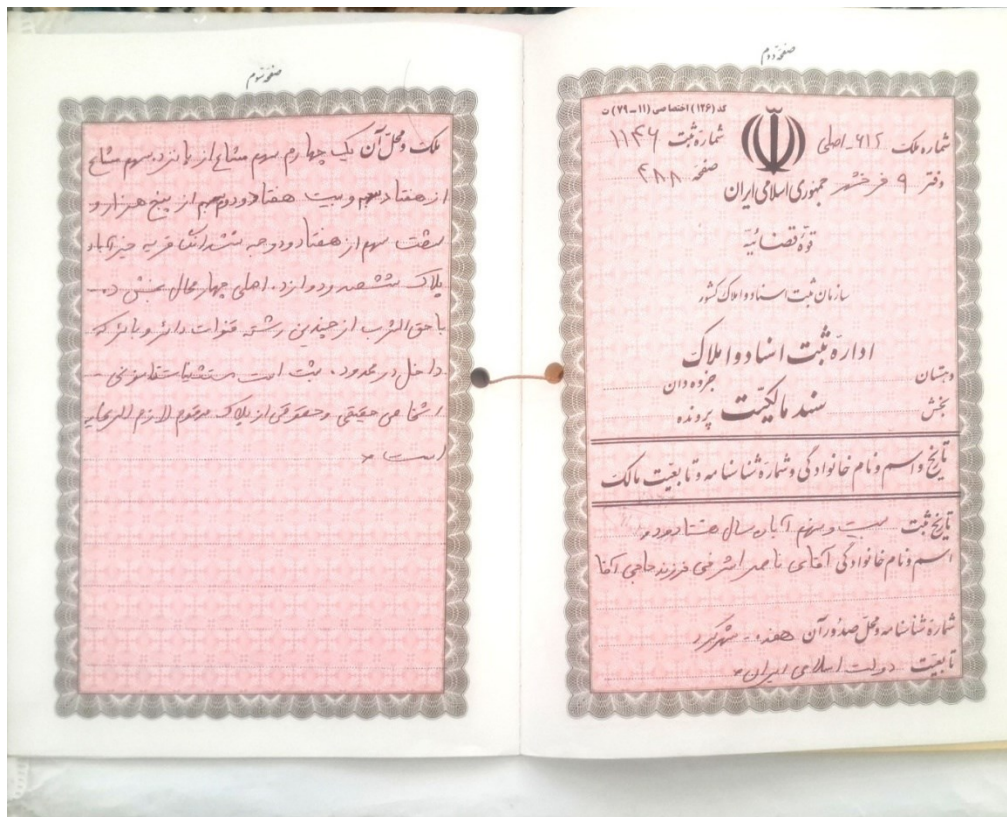 صفحه دوم
کد (۱۲۶) اختصاصی (۱۱-۷۹) ت
شماره ملک ۶۱۲-اصلی
شماره ثبت ۱۱۴۶
دفتر ۹ فرخشهر
صفحه ۴۸۸
جمهوری اسلامی ایران
قوه قضائیه
سازمان ثبت اسناد و املاک کشور
اداره ثبت اسناد و املاک
دهستان
جزوه دان
بخش
سند مالکیت
پرونده
تاریخ و اسم و نام خانوادگی و شماره شناسنامه و تابعیت مالک
تاریخ ثبت بیست و سوم آبان سال هشتاد و دو
اسم و نام خانوادگی آقای ناصر اشرفی فرزند حاجی آقا
شماره شناسنامه و محل صدور آن هفده - شهرکرد
تابعیت دولت اسلامی ایران
صفحه سوم
ملک و محل آن یک چهارم سهم مشاع از پانزده سهم مشاع
از هفتاد سهم و بیست هفتاد و دوم سهم از پنج هزار و
سهم از هفتاد و دو حبه ششدانگ قریه خیرآباد
پلاک ششصد و دوازده اصلی چهارمحال بخش ده
با حق الشرب از چندین رشته قنوات دائر و بائر که
داخل در محدوده ثبت است مستثنیات قانونی
اشخاص حقیقی و حقوقی از پلاک مرقوم لازم الرعایه
است